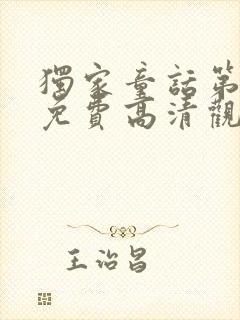 獨家童話第
免費高清觀
王治昌